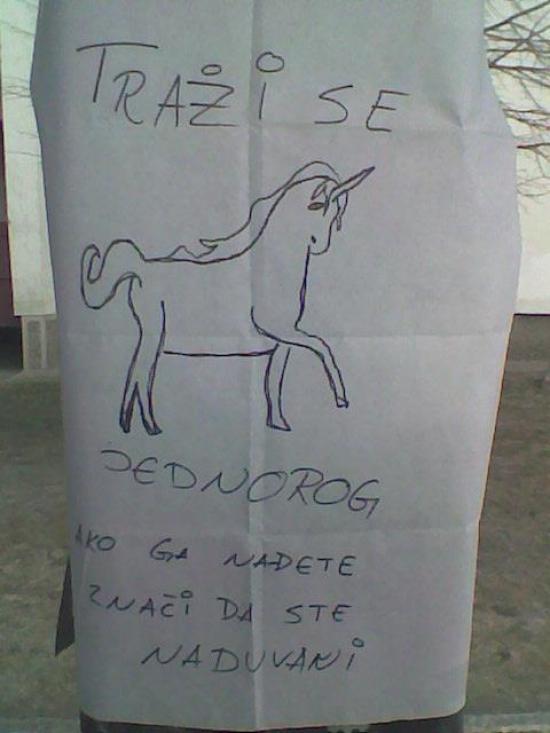 TRAŽI SE
JEDNOROG
AKO GA NADETE
ZNAČI DA STE
NADUVANI